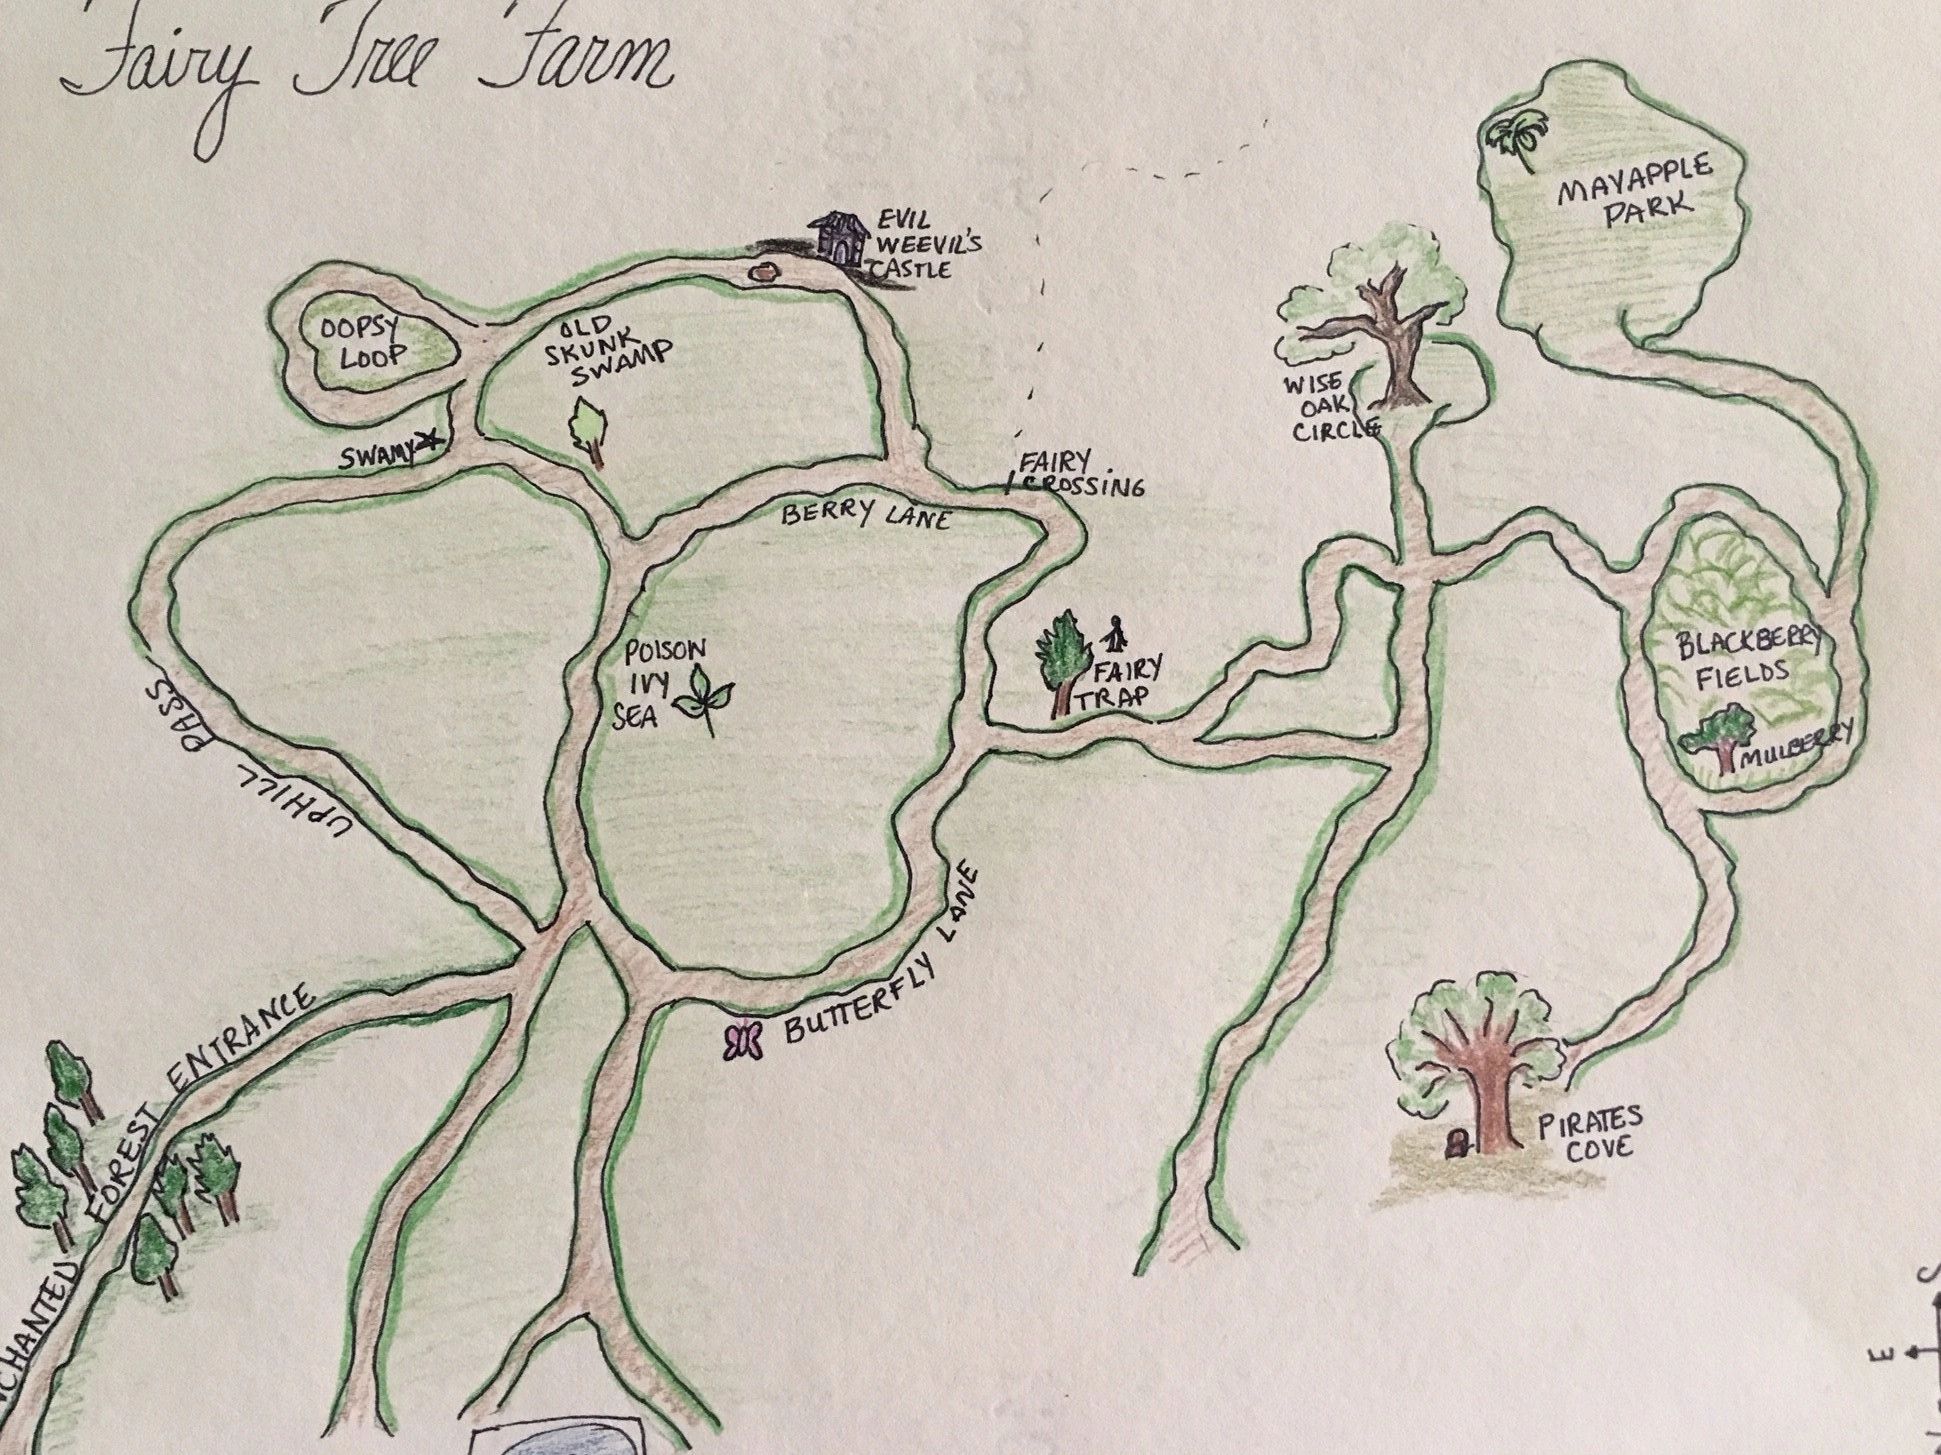 Fairy Tree Farm
MAYAPPLE
PARK
EVIL
WEEVIL'S
CASTLE
OOPSY
LOOP
OLD
SKUNK
SWAMP
WISE
OAK
CIRCLE
SWAMY
FAIRY
CROSSING
BERRY LANE
POISON
IVY
SEA
FAIRY
TRAP
BLACKBERRY
FIELDS
MULBERRY
UPHILL PASS
BUTTERFLY LANE
NCHANTED FOREST ENTRANCE
PIRATES
COVE
S
E